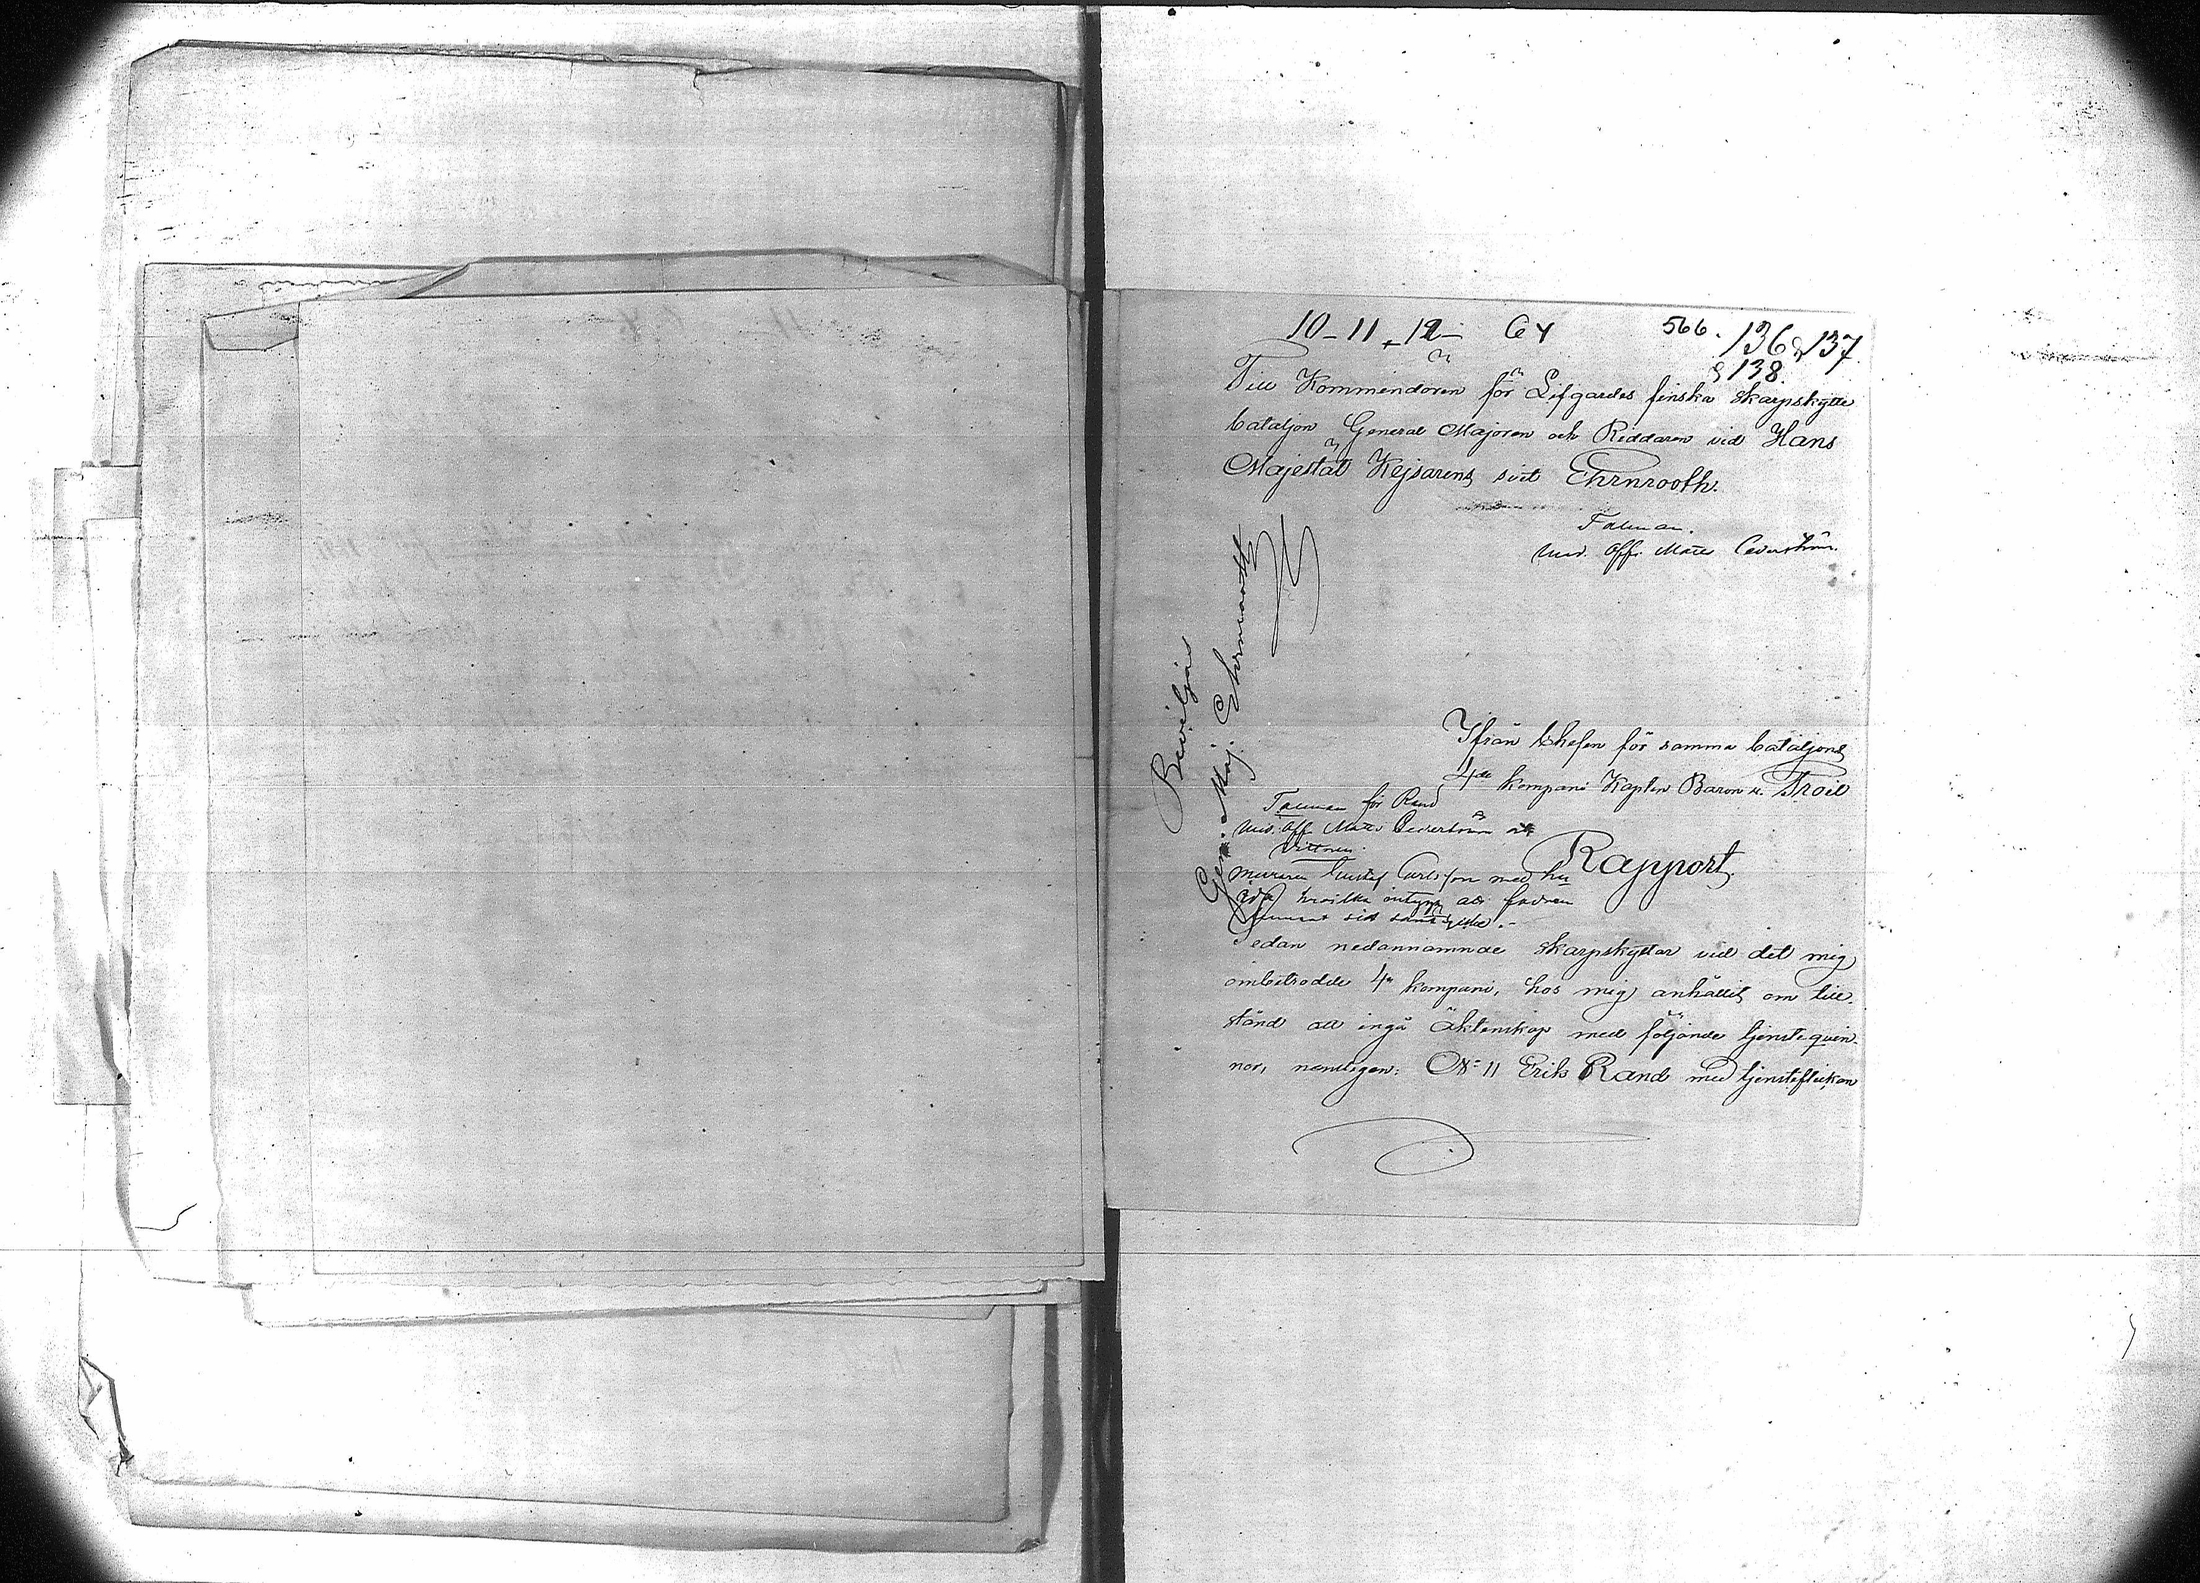 10-11 + 12- 64 566. 136 & 137
& 138.
Till Kommendören för Lifgardes finska skarpskytte
bataljon General Majoren och Riddaren vid Hans
Majestät Kejsarens svit Ehrnrooth.
Talman.
und. Off. Matts Cederström.
Beviljas
Gen. Maj. Ehrnrooth
Ifrån Chefen för samma bataljons
4de kompani Kapten Baron v. Troil
Talman för Rand
und. Off. Matts Cederström
Vittnen.
Rapport.
muraren Gustaf Carlsson med hu
Ida hvilka intyga att fadren
sitt samtycke.-
Sedan nedannämnde skarpskyttar vid det mig
ombetrodde 4de kompani, hos mig anhållit om till-
stånd att ingå äktenskap med följande tjenstequin-
nor, nemligen: No 11 Erik Rand med tjensteflickan